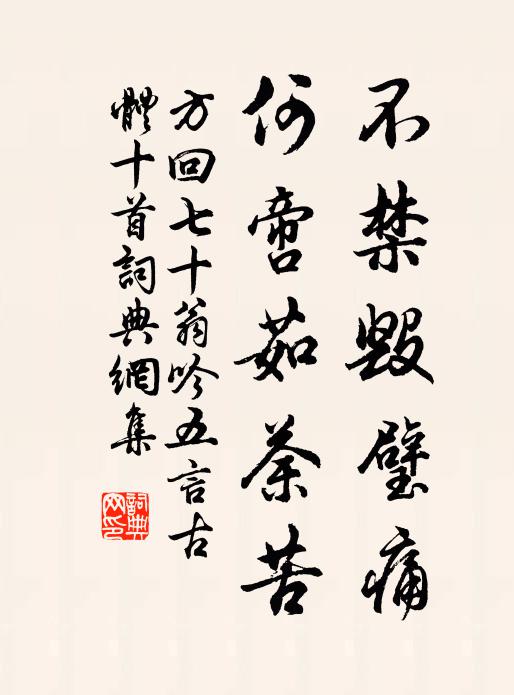 不禁毀璧痛
何啻茹荼苦
方回七十翁吟五言古
體十首詞典網集
詞典網印